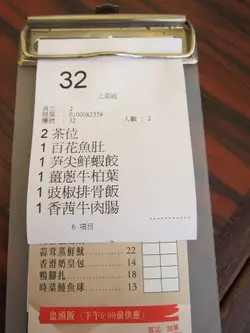 32
上菜紙
員工 : 2
賬單 : 0100082556
檯號 : 32 人數 : 2
2 茶位
1 百花魚肚
1 荀尖鮮蝦餃
1 薑蔥牛柏葉
1 豉椒排骨飯
1 香茜牛肉腸
6 項目
蒜茸蒸鮮魷 22
香滑奶皇包 14
鴨腳扎 18
時菜鯪魚球 13
出頭飯（下午6:00前供應）